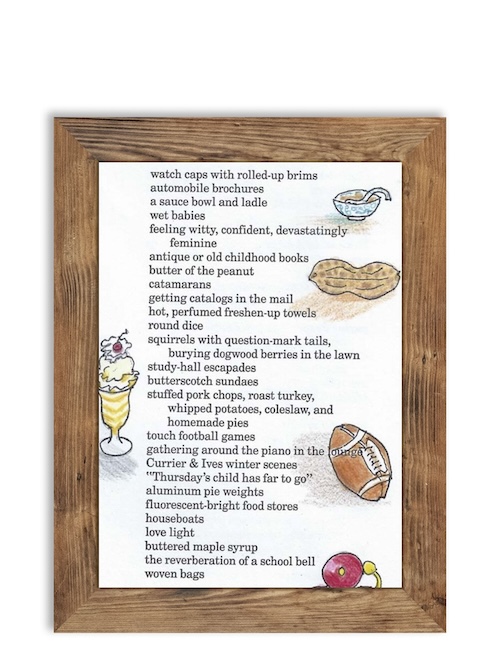 watch caps with rolled-up brims
automobile brochures
a sauce bowl and ladle
wet babies
feeling witty, confident, devastatingly
feminine
antique or old childhood books
butter of the peanut
catamarans
getting catalogs in the mail
hot, perfumed freshen-up towels
round dice
squirrels with question-mark tails,
burying dogwood berries in the lawn
study-hall escapades
butterscotch sundaes
stuffed pork chops, roast turkey,
whipped potatoes, coleslaw, and
homemade pies
touch football games
gathering around the piano in the lounge
Currier & Ives winter scenes
"Thursday's child has far to go"
aluminum pie weights
fluorescent-bright food stores
houseboats
love light
buttered maple syrup
the reverberation of a school bell
woven bags